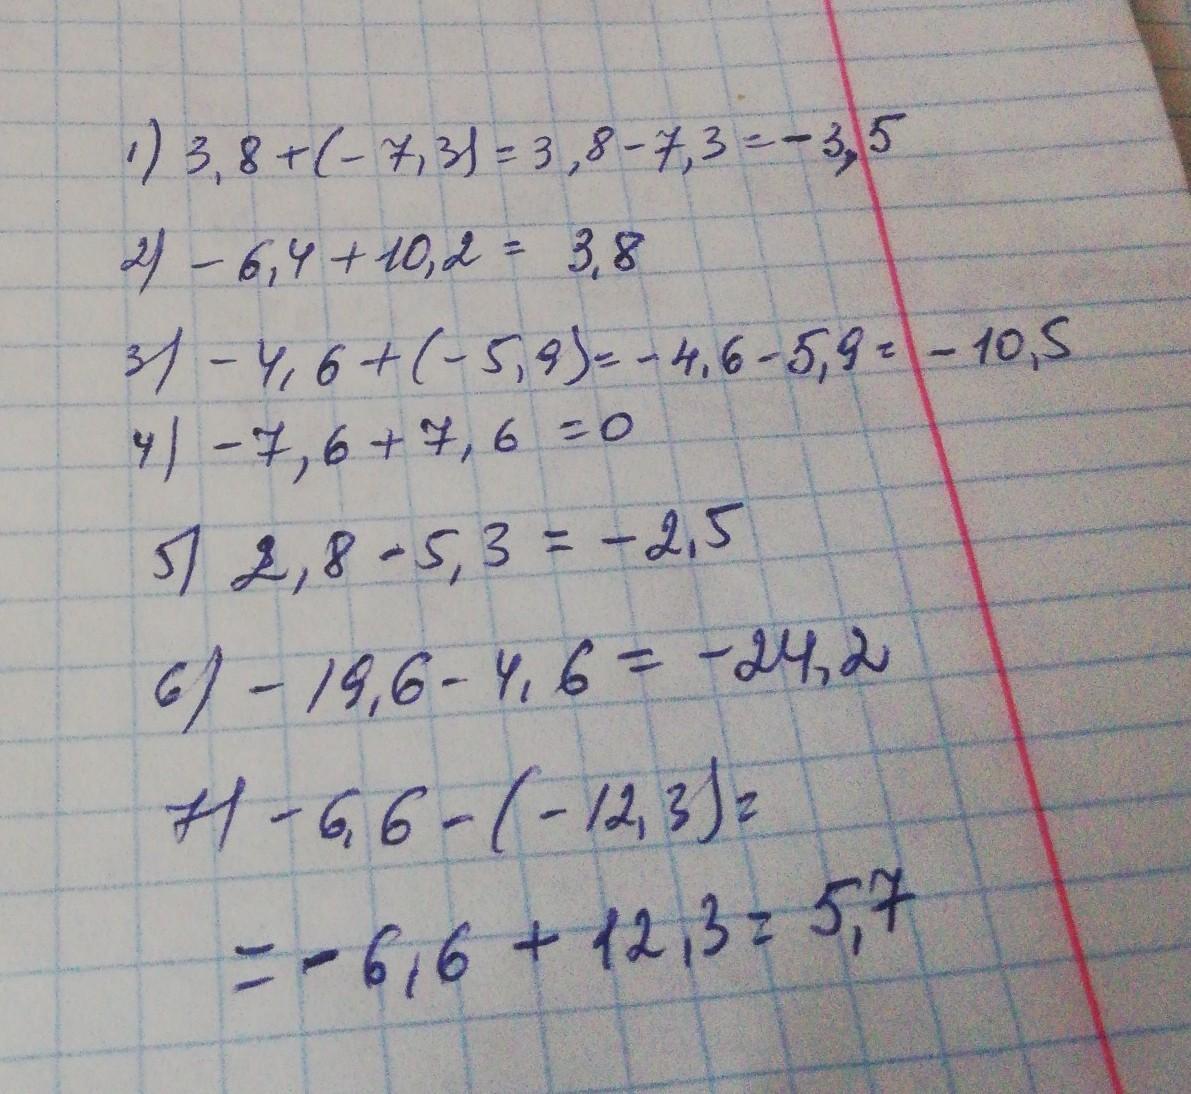 1) 3,8+(-7,3)=3,8-7,3=-3,5
2) -6,4+10,2= 3,8
3) -4,6+(-5,9)=-4,6-5,9= -10,5
4) -7,6+7,6 =0
5) 2,8-5,3 = -2,5
6) -19,6-4,6 = -24,2
7) -6,6-(-12,3)=
=-6,6+12,3=5,7